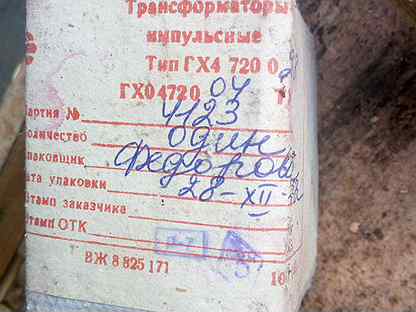 Трансформаторы
импульсные
Тип ГХ4 720 0
ГХ04720 04
артия № 4123
оличество один
паковщик Федоров
ата упаковки 28-XII-
тамп заказчике
тамп ОТК
ВЖ 8 825 171 10